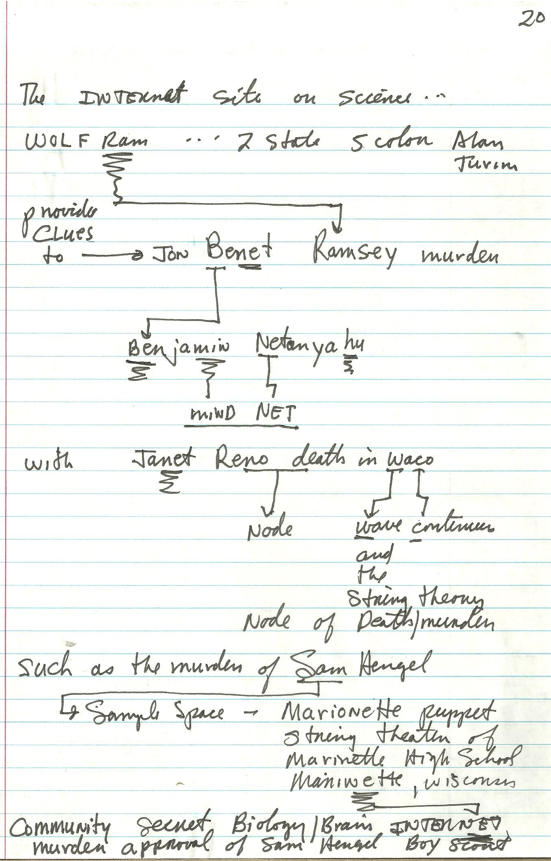 20
The INTERNET site on science...
WOLF Ram ... 2 state 5 color Alan
Turin
provides
CLUES
to → JON Benet Ramsey murder
Benjamin Netanyahu
miND NET
with Janet Reno death in Waco
Node wave continuus
and
the
string theory
Node of Death/murder
such as the murder of Sam Hengel
Sample Space - Marionette puppet
string theater of
Marinette High School
Marinette, Wisconsin
Community Secret Biology/Brain INTERNET
murder approval of Sam Hengel Boy Scout